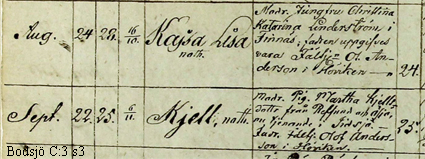 Aug. 24 29. 16/10 Kajsa Lisa
nath.
Madr. Jungfru Christina
Katarina Linderström i
Finnäs, fadren uppgifves
vara Fältjr Ol. An-
derson i Höriken — 24.
Sept. 22. 25. 6/11 Kjell, nath.
Madr. Pig. Martha Kjells-
dotter från
nu tjenande i
fadr. Fältj. Olof Anders-
son i Höriken.
Bodsjö C:3 s3